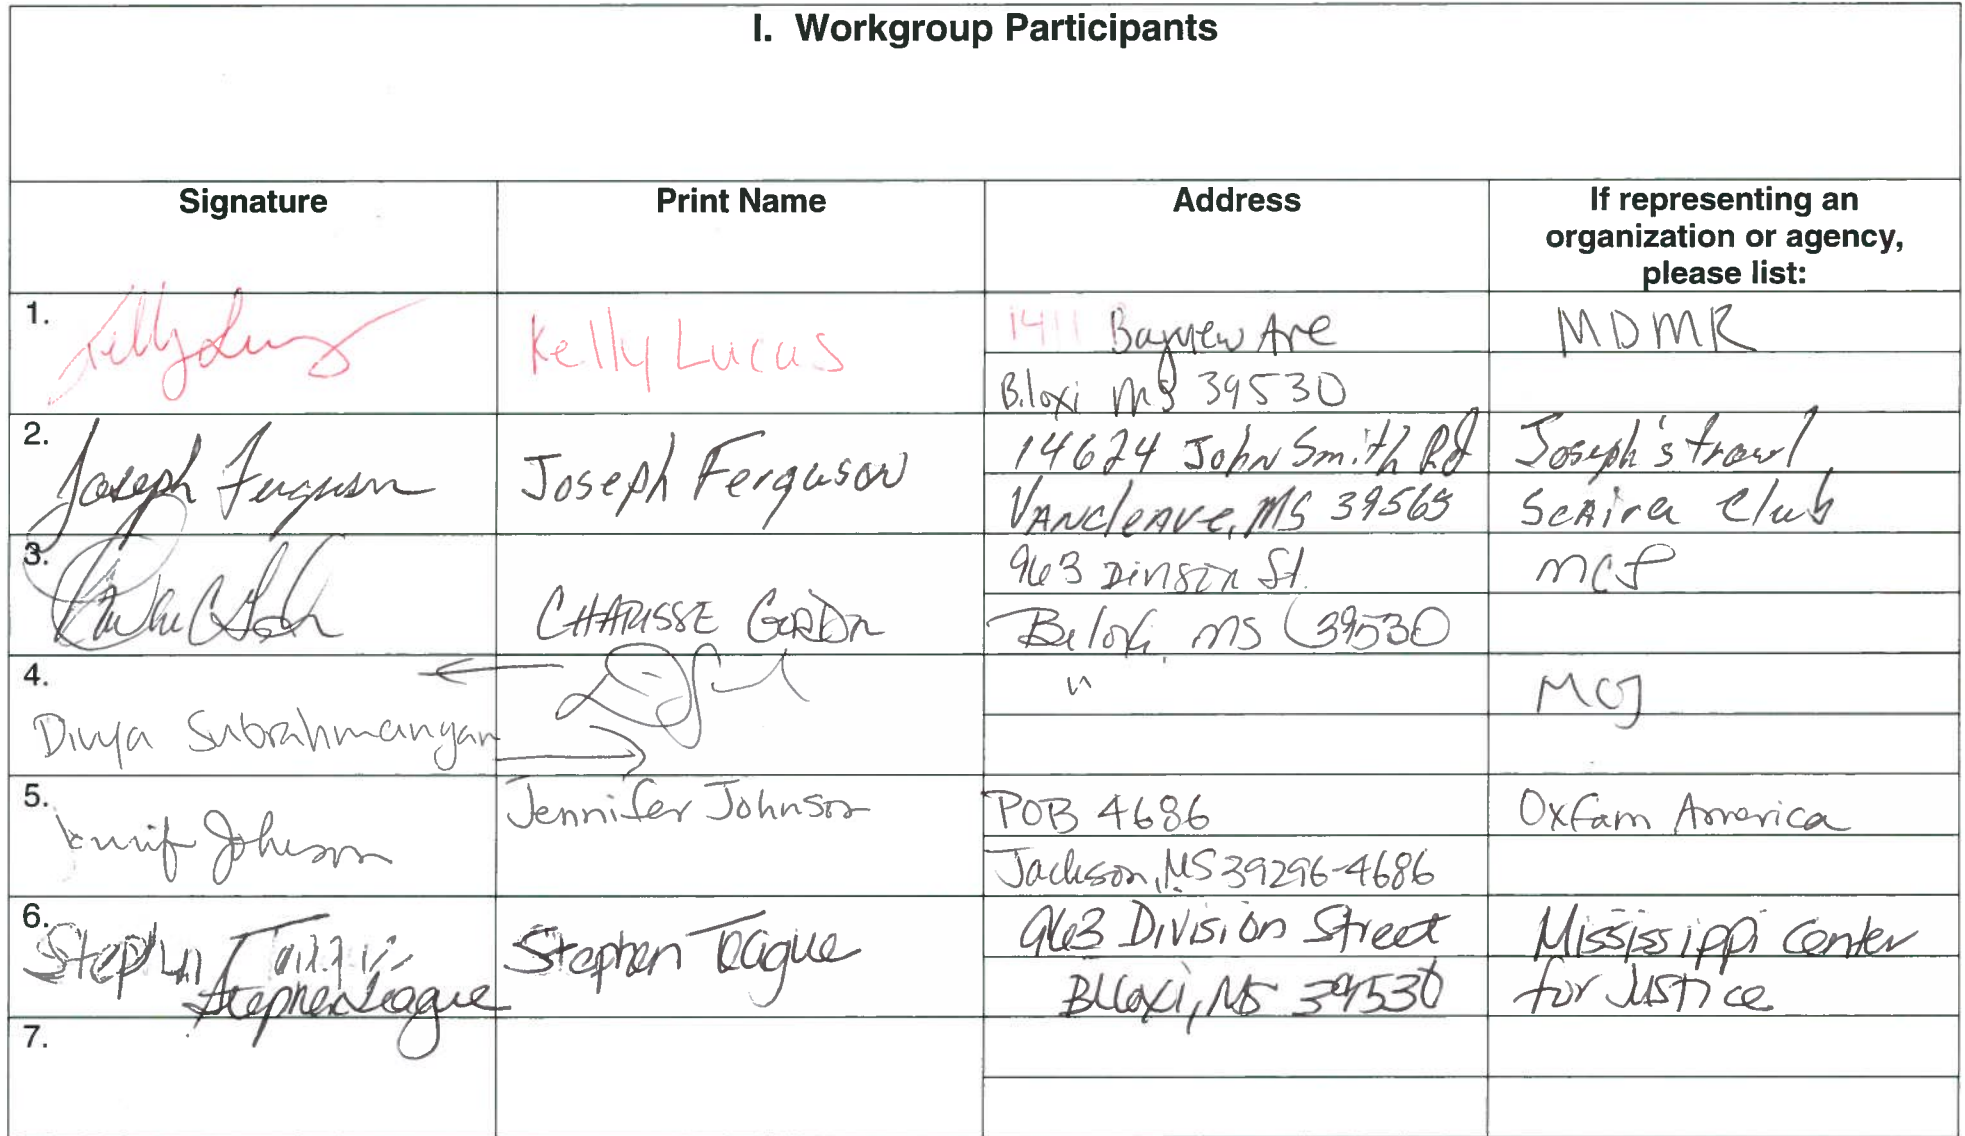 I. Workgroup Participants
Signature
Print Name
Address
If representing an
organization or agency,
please list:
1.
Kelly Lucas
1411 Bayview Ave
Biloxi MS 39530
MDMR
2.
Joseph Ferguson
Joseph Ferguson
14624 John Smith Rd
Vancleave, MS 39565
Joseph's trawl
Scaira Club
3.
CHARISSE GORDON
963 Division St.
Biloxi, MS 39530
MCJ
4.
Divya Subrahmanyan
"
MCJ
5.
Johnson
Jennifer Johnson
POB 4686
Jackson, MS 39296-4686
Oxfam America
6.
Stephen
Stephen Teague
Stephen Teague
963 Division Street
Biloxi, MS 39530
Mississippi Center
for Justice
7.